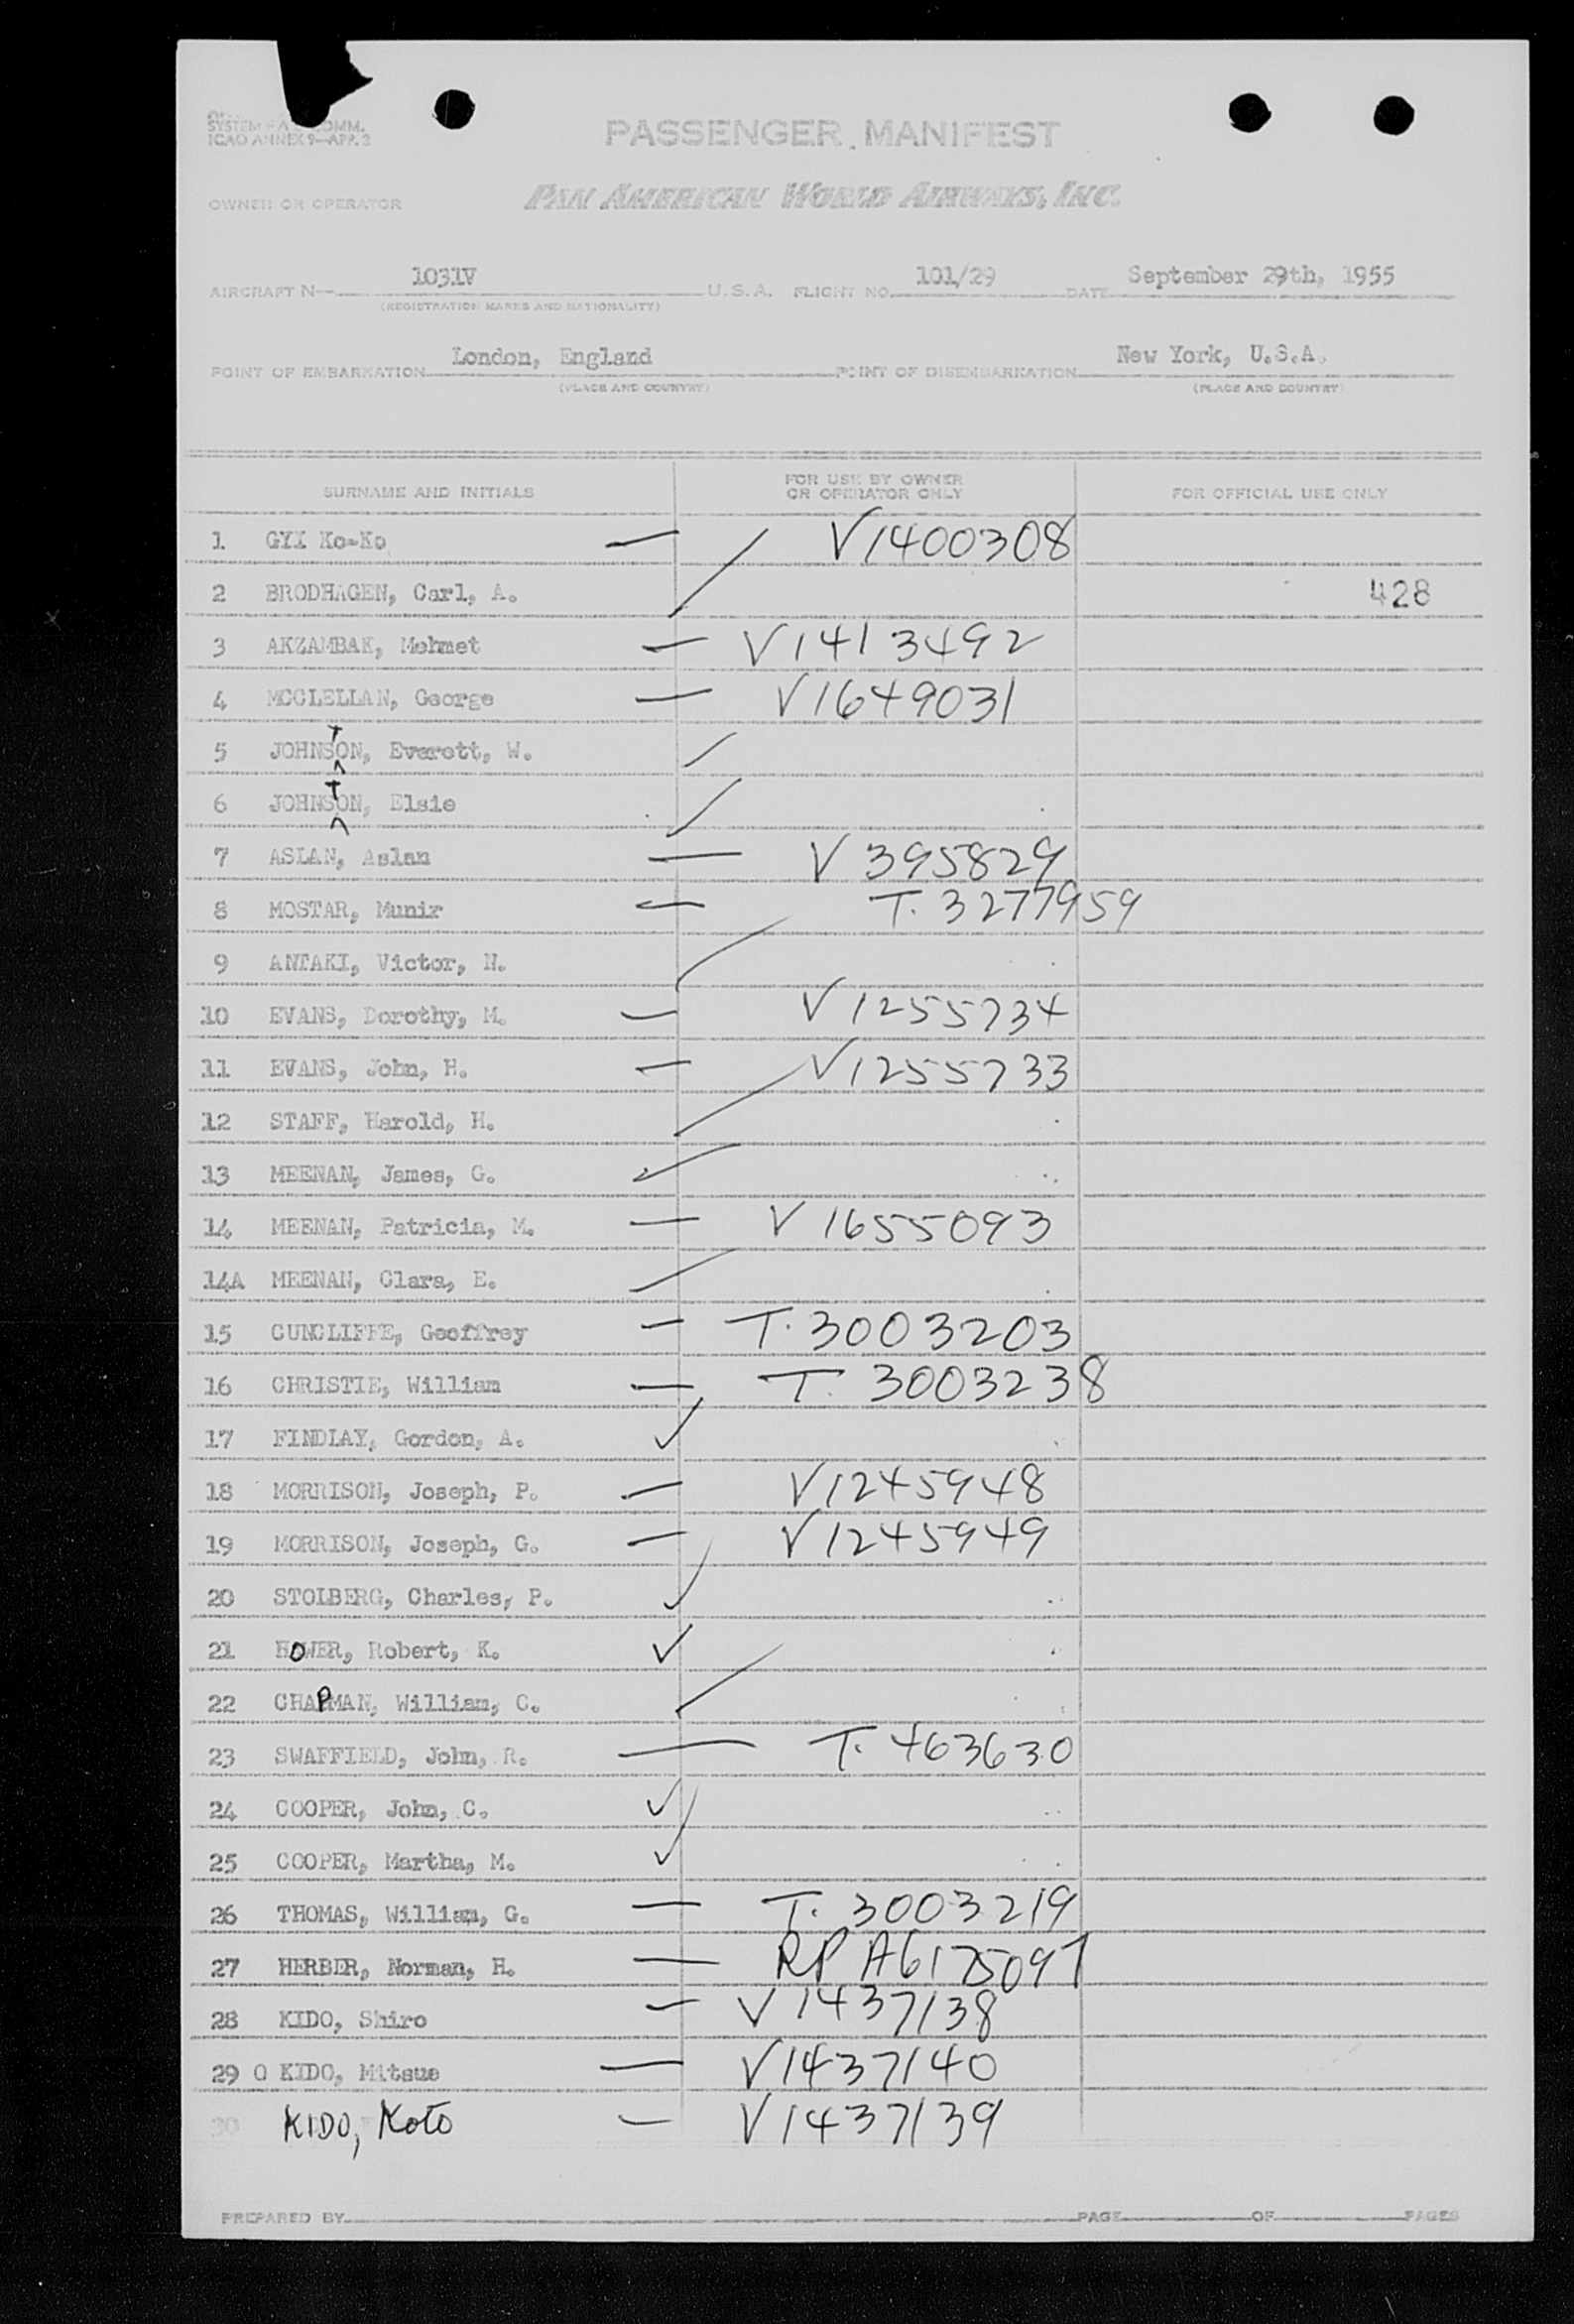 SYSTEM COMM.
ICAO ANNEX 9—APP. 3
PASSENGER MANIFEST
OWNER OR OPERATOR PAN AMERICAN WORLD AIRWAYS, INC.
AIRCRAFT N— 1031V U. S. A. FLIGHT NO. 101/29 DATE September 29th, 1955
(REGISTRATION MARKS AND NATIONALITY)
POINT OF EMBARKATION London, England POINT OF DISEMBARKATION New York, U.S.A.
(PLACE AND COUNTRY) (PLACE AND COUNTRY)
SURNAME AND INITIALS FOR USE BY OWNER OR OPERATOR ONLY FOR OFFICIAL USE ONLY
1 GYI Ko-Ko — V1400308
2 BRODHAGEN, Carl, A. 428
3 AKZAMBAK, Mehmet — V1413492
4 MCCLELLAN, George — V1649031
5 JOHNSTON, Everett, W.
6 JOHNSTON, Elsie
7 ASLAN, Aslan — V 395829
8 MOSTAR, Munir — T. 3277959
9 ANTAKI, Victor, N.
10 EVANS, Dorothy, M. — V1255734
11 EVANS, John, H. — V1255733
12 STAFF, Harold, H.
13 MEENAN, James, G. ✓
14 MEENAN, Patricia, M. — V 1655093
14A MEENAN, Clara, E.
15 CUNCLIFFE, Geoffrey — T. 3003203
16 CHRISTIE, William — T. 3003238
17 FINDLAY, Gordon, A. ✓
18 MORRISON, Joseph, P. — V1245948
19 MORRISON, Joseph, G. — V1245949
20 STOLBERG, Charles, P. ✓
21 HOWER, Robert, K. ✓
22 CHAPMAN, William, C.
23 SWAFFIELD, John, R. — T. 463630
24 COOPER, John, C. ✓
25 COOPER, Martha, M. ✓
26 THOMAS, William, G. — T. 3003219
27 HERBER, Norman, H. — RP A6175097
28 KIDO, Shiro — V1437138
29 O KIDO, Mitsue — V1437140
30 KIDO, Koto — V1437139
PREPARED BY PAGE OF PAGES